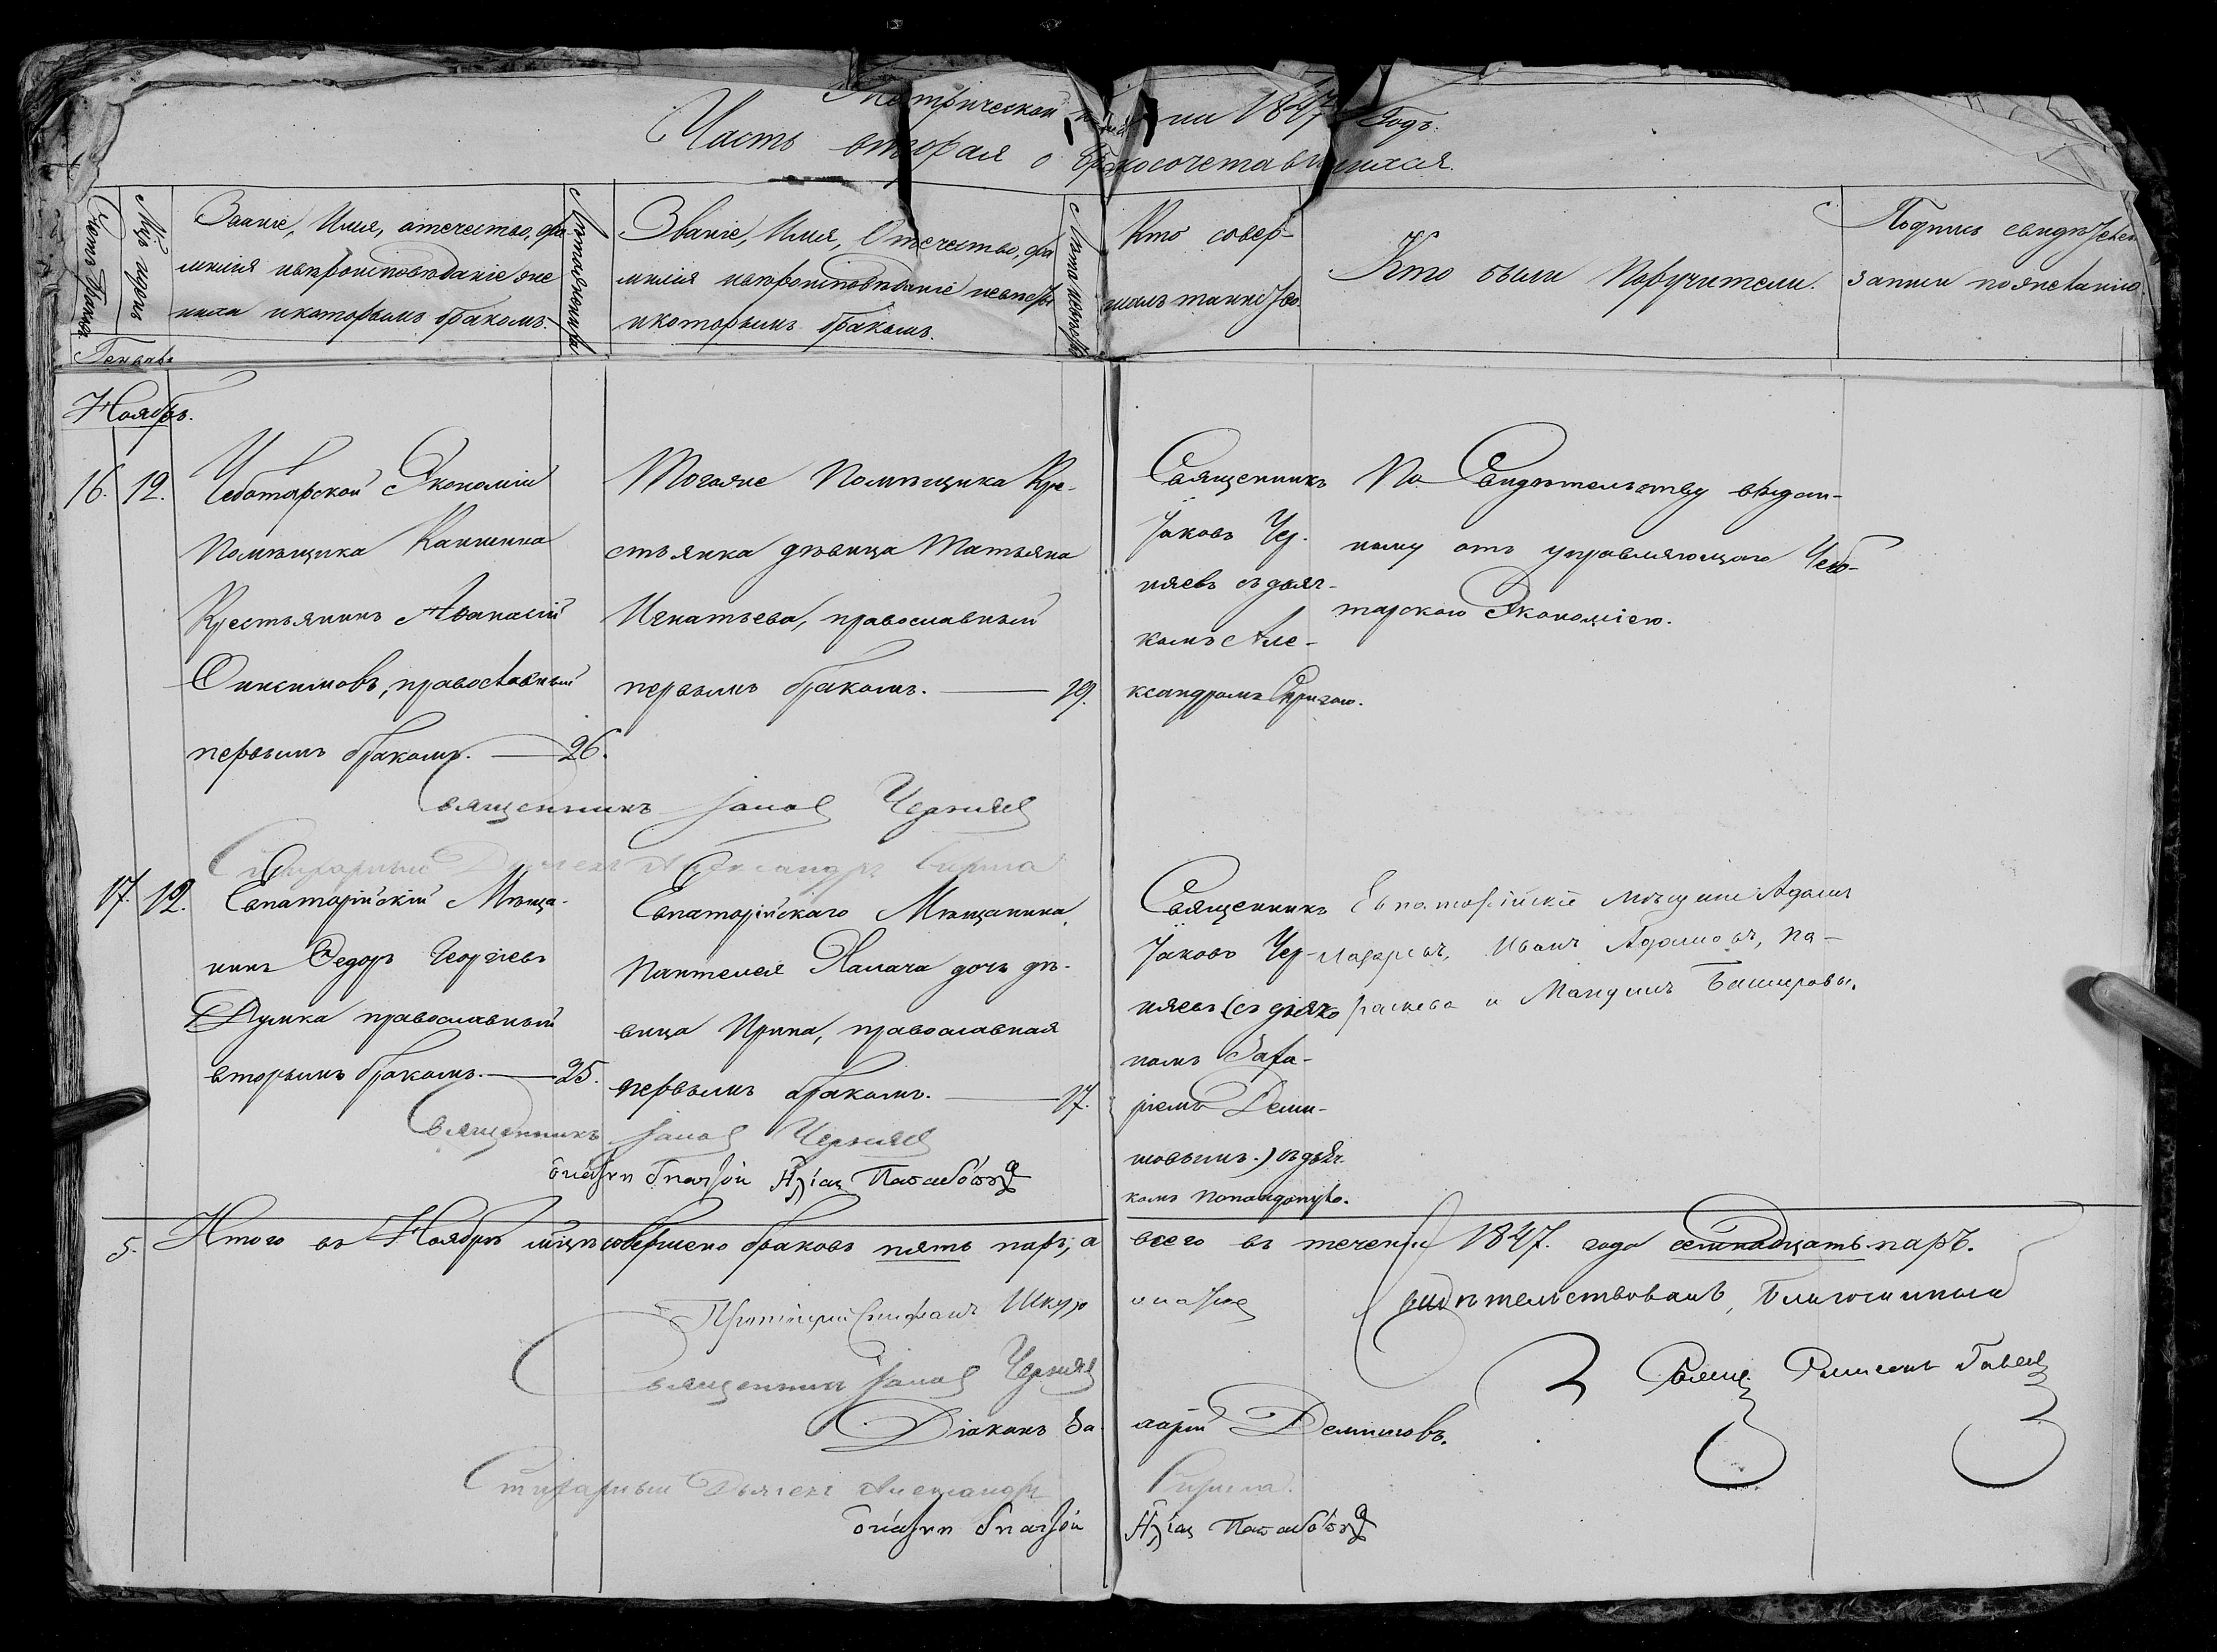 Метрической на 1847 Годъ.
Часть вторая о бракосочетавшихся.
Счетъ браковъ.
Мѣс. и день
Званіе, Имя, отечество, фа
милія и вѣроисповѣданіе же
ниха и которымъ бракомъ.
Лѣта жениха
Званіе, Имя, Отечество, фа
милія и вѣроисповѣданіе невѣсты
и которымъ бракомъ.
Лѣта невѣсты
Кто совер-
шалъ таинство
Кто были Поручители.
Подпись свидѣтелей
записи по желанію
Генварь
Ноябрь.
16. 12.
Чеботарской Экономіи
Помѣщика
Крестьянинъ Аѳанасій
Онисимовъ, православный
первымъ бракомъ. — 26.
Тогоже Помѣщика Кре-
стьянка дѣвица Татьяна
Игнатьева, православный
первымъ бракомъ. — 19.
Священникъ
Іаковъ Чер-
няевъ съ дьяч-
комъ Але-
ксандромъ
По Свидѣтельству выдан-
ному отъ управляющаго Чебо-
тарскою Экономіею.
Священникъ Іаковъ Черняев
Стихарный Дьячекъ Александръ
17. 12.
Евпаторійскій Мѣща-
нинъ Федоръ Георгіевъ
Думка православный
вторымъ бракомъ. — 25.
Евпаторійскаго Мѣщанина
Пантелея Халача дочь дѣ-
вица Ирина, православная
первымъ бракомъ. — 17.
Священникъ
Іаковъ Чер-
няевъ (съ діако
номъ Заха-
ріемъ Деми-
шовымъ.) съ дьяч-
комъ Попандопуло.
Евпаторійскіе мѣщане Адамъ
Лазаревъ, Иванъ Адамовъ, Па-
раскева и Башировы.
Священникъ Іаковъ Черняев
5. Итого въ Ноябрѣ мѣсцѣ совершено браковъ пять паръ, а всего въ теченіи 1847. года семнадцать паръ.
Протоіерей Стефанъ
Свидѣтельствовалъ, Благочинный
Священникъ Іаковъ Черняев
Діаконъ Захарій Демишовъ.
Стихарный Дьячекъ Александръ